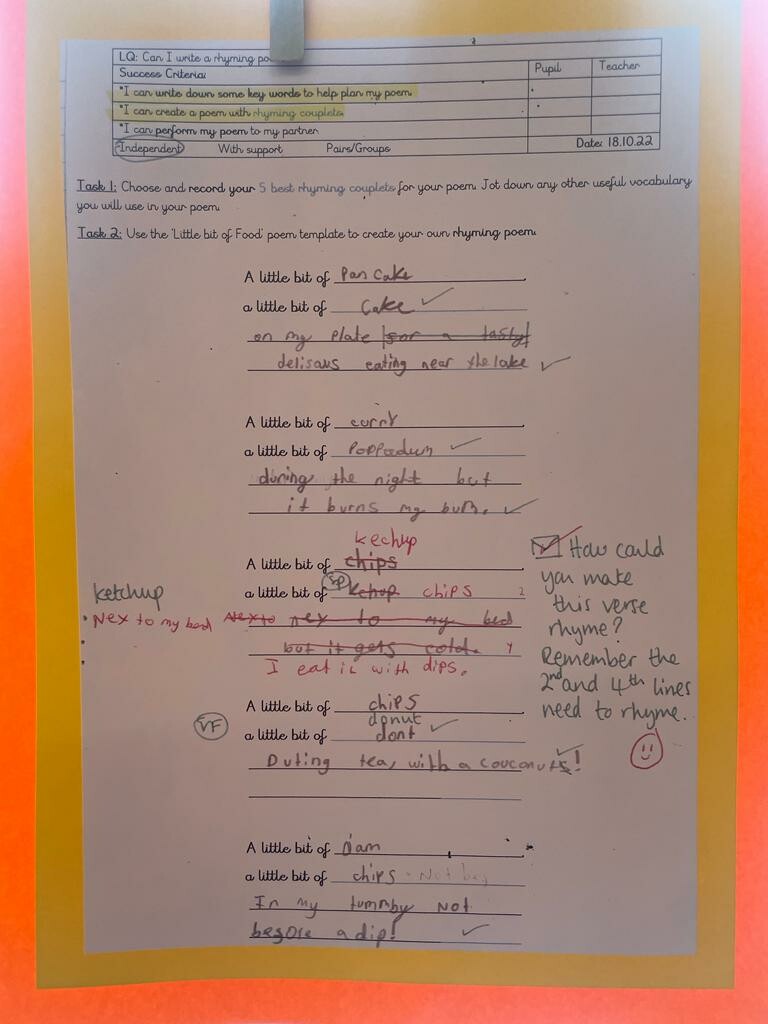 LQ: Can I write a rhyming po
Success Criteria:
Pupil
Teacher
*I can write down some key words to help plan my poem.
*I can create a poem with rhyming couplets.
*I can perform my poem to my partner
Independent With support Pairs/Groups Date: 18.10.22
Task 1: Choose and record your 5 best rhyming couplets for your poem. Jot down any other useful vocabulary
you will use in your poem.
Task 2: Use the 'Little bit of Food' poem template to create your own rhyming poem.
A little bit of Pancake
a little bit of Cake
on my plate for a tasty
delisaus eating near the lake
A little bit of curry
a little bit of Poppadum
during the night but
it burns my bum.
kechup
A little bit of chips
a little bit of sp Kehup chips 2
ketchup
Nex to my bed Nex to nex to my bed
but it gets cold. 4
I eat it with dips.
How could
you make
this verse
rhyme?
Remember the
2nd and 4th lines
need to rhyme.
A little bit of chips
donut
VF
a little bit of dont
Duting tea, with a couconuts!
A little bit of Jam
a little bit of chips Not
In my tummby Not
before a dip!